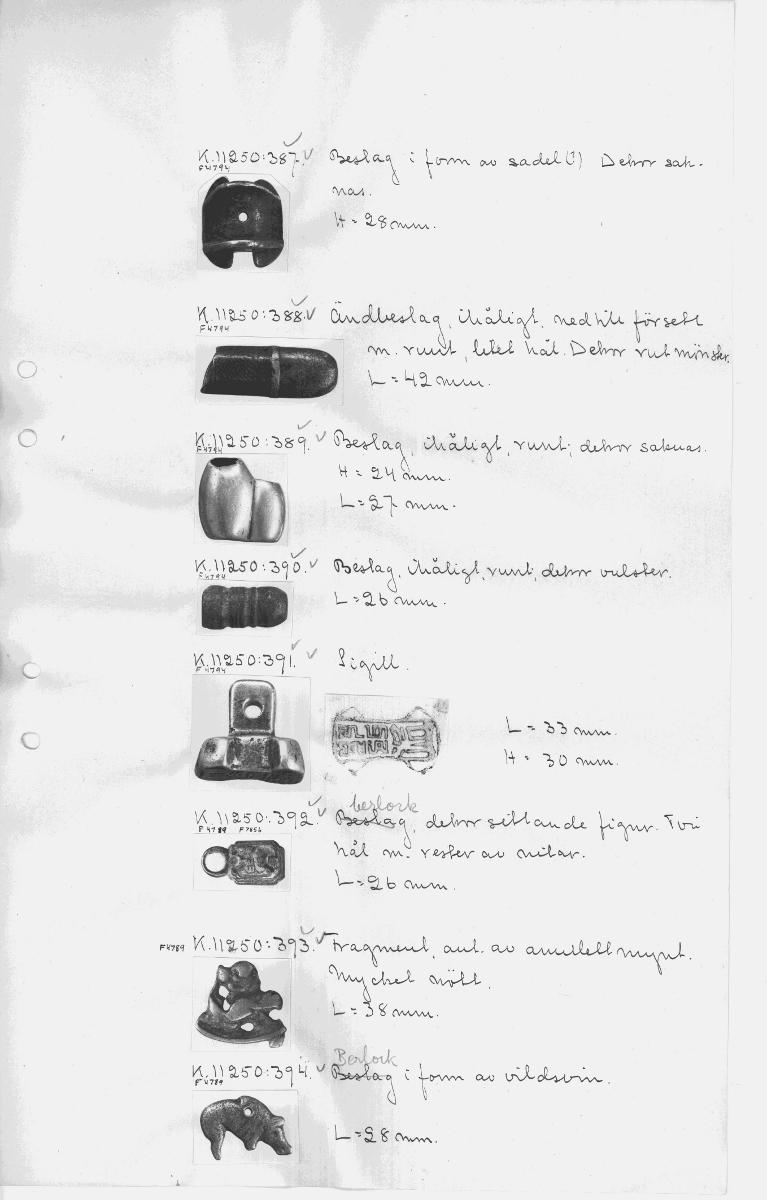 K.11250:387. Beslag i form av sadel (?) Dekor sak-
F4794
nas.
H = 28 mm.
K.11250:388. Ändbeslag, ihåligt, nedtill försett
F4794
m. runt, litet hål. Dekor rutmönster.
L = 42 mm.
K.11250:389. Beslag, ihåligt, runt; dekor saknas.
F4794
H = 24 mm.
L = 27 mm.
K.11250:390. Beslag, ihåligt, runt, dekor vulster.
F4794
L = 26 mm.
K.11250:391. Sigill.
F4794
L = 33 mm.
H = 30 mm.
berlock
K.11250:392. Beslag, dekor sittande figur. Två
F4789 F7856
hål m. rester av nitar.
L = 26 mm.
F4789 K.11250:393. Fragment, ant. av amulettmynt.
Mycket nött.
L = 38 mm.
Berlock
K.11250:394. Beslag i form av vildsvin.
F4789
L = 28 mm.